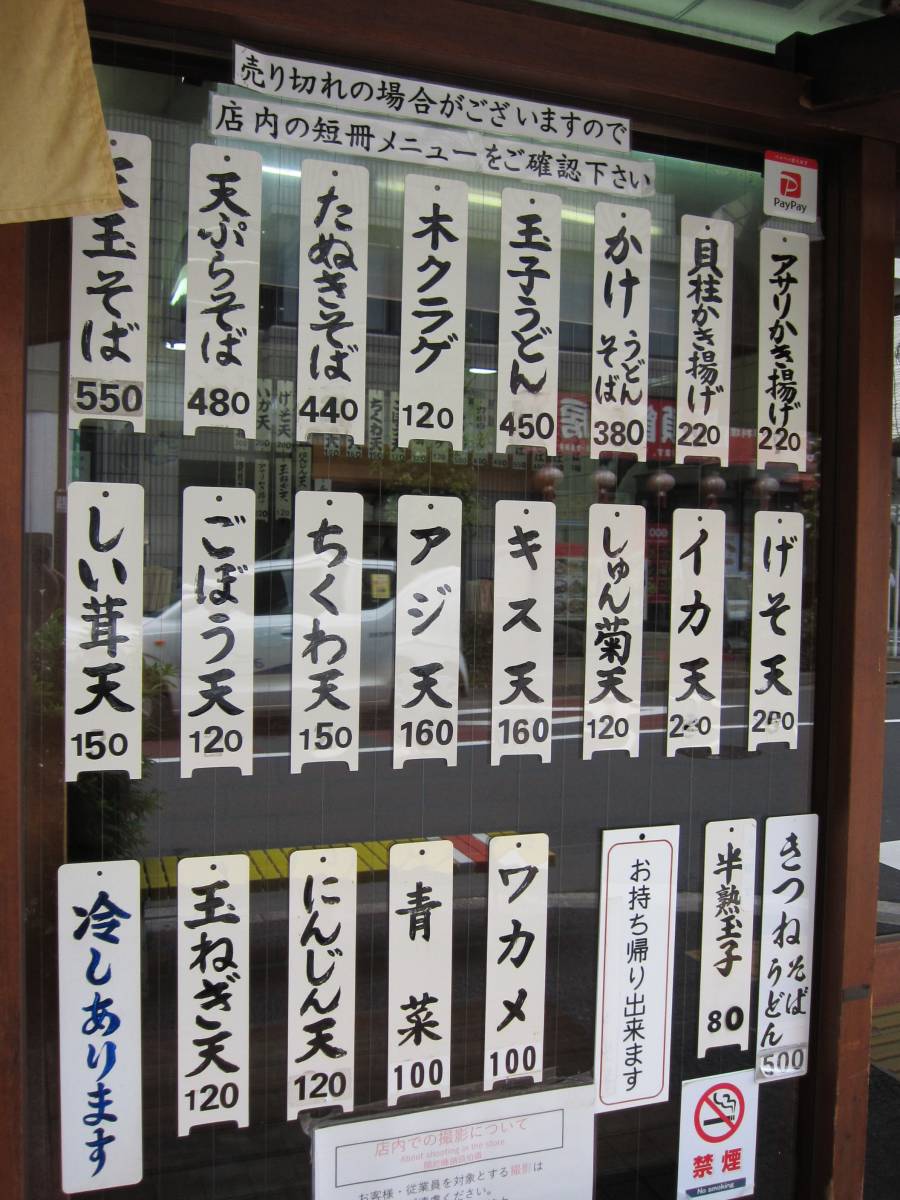 売り切れの場合がございますので
店内の短冊メニューをご確認下さい
PayPay
アサリかき揚げ
220
貝柱かき揚げ
220
かけ
うどん
そば
380
玉子うどん
450
木クラゲ
120
たぬきそば
440
天ぷらそば
480
天玉そば
550
げそ天
イカ天
しゅん菊天
120
キス天
160
アジ天
160
ちくわ天
150
ごぼう天
120
しい茸天
150
きつね
そば
うどん
500
半熟玉子
80
お持ち帰り出来ます
ワカメ
100
青菜
100
にんじん天
120
玉ねぎ天
120
冷しあります
禁煙
No smoking
店内での撮影について
About shooting in the store
お客様・従業員を対象とする撮影は